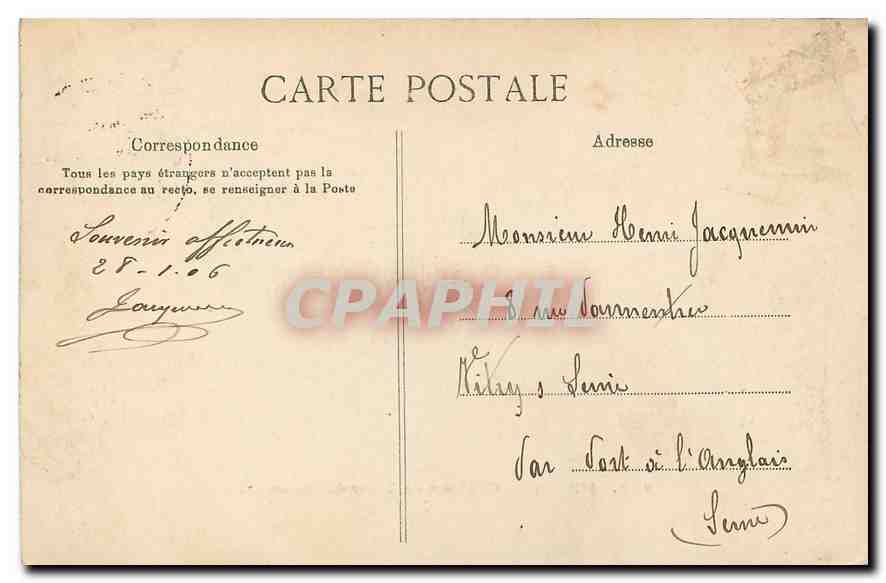 CARTE POSTALE
Correspondance
Tous les pays étrangers n'acceptent pas la
correspondance au recto, se renseigner à la Poste
Souvenir affectueux
28-1-06
Adresse
Monsieur Henri Jacquemin
8 rue Parmentier
Vitry s Seine
Par Port à l'Anglais
(Seine)
CPAPHIL